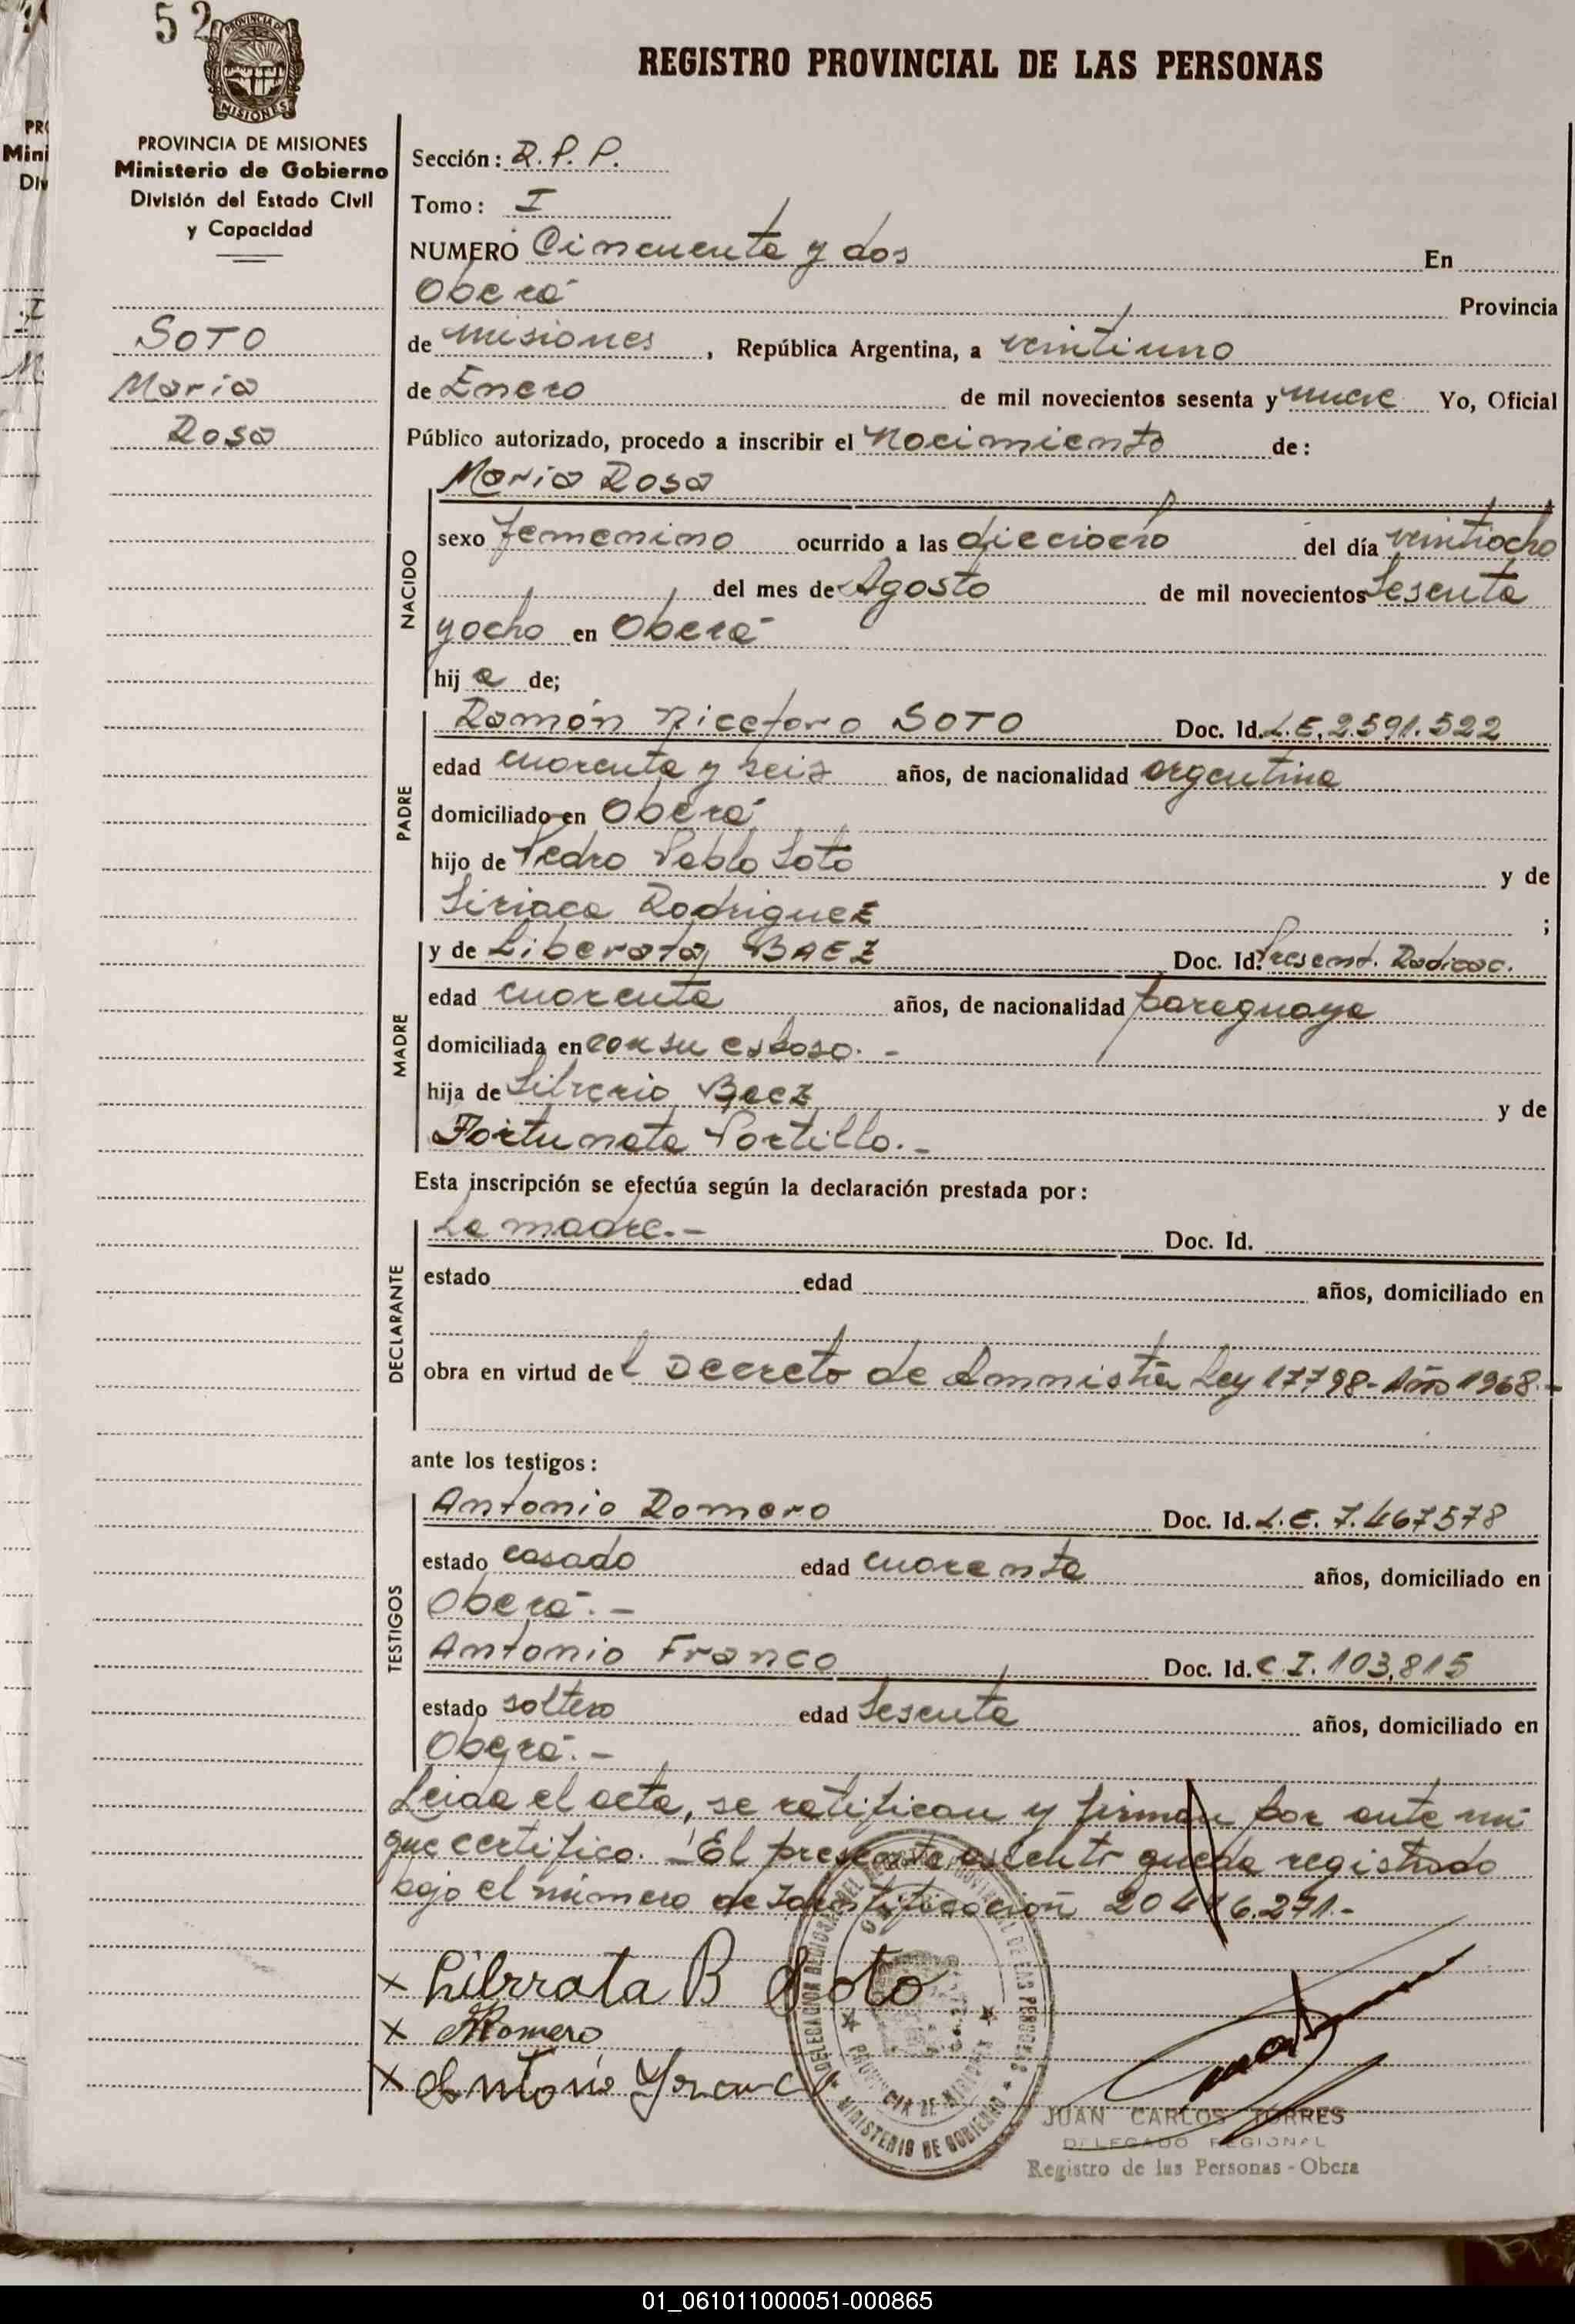 52
PROVINCIA DE
MISIONES
REGISTRO PROVINCIAL DE LAS PERSONAS
PROVINCIA DE MISIONES
Ministerio de Gobierno
División del Estado Civil
y Capacidad
SOTO
Maria
Rosa
Sección: R.P.P.
Tomo: I
NUMERO Cincuenta y dos En
Oberá Provincia
de Misiones, República Argentina, a veintiuno
de Enero de mil novecientos sesenta y nueve Yo, Oficial
Público autorizado, procedo a inscribir el Nacimiento de:
Maria Rosa
NACIDO
sexo femenino ocurrido a las dieciocho del día veintiocho
del mes de Agosto de mil novecientos Sesenta
y ocho en Oberá
hij a de;
PADRE
Ramón Niceforo SOTO Doc. Id. L.E. 2.591.522
edad cuarenta y seis años, de nacionalidad argentina
domiciliado en Oberá
hijo de Pedro Pablo Soto y de
Siriaca Rodriguez ;
MADRE
y de Liberata BAEZ Doc. Id. Present. Radicac.
edad cuarenta años, de nacionalidad paraguaya
domiciliada en con su esposo. -
hija de Silverio Baez y de
Fortunata Portillo. -
Esta inscripción se efectúa según la declaración prestada por:
DECLARANTE
La madre. - Doc. Id.
estado edad años, domiciliado en
obra en virtud del Decreto de Amnistia Ley 17798 - Año 1968. -
ante los testigos:
TESTIGOS
Antonio Romero Doc. Id. L.E. 7.467578
estado casado edad cuarenta años, domiciliado en
Oberá. -
Antonio Franco Doc. Id. C.I. 103,815
estado soltero edad Sesenta años, domiciliado en
Oberá. -
Leida el acta, se ratifican y firman por ante mi
que certifico. - El presente asiento queda registrado
bajo el número de Identificación 20.416.271. -
x Librrata B Soto
x ARomero
x Antonio Franco
MINISTERIO DE GOBIERNO
PROVINCIA DE MISIONES
JUAN CARLOS TORRES
DELEGADO REGIONAL
Registro de las Personas - Obera
01_061011000051-000865